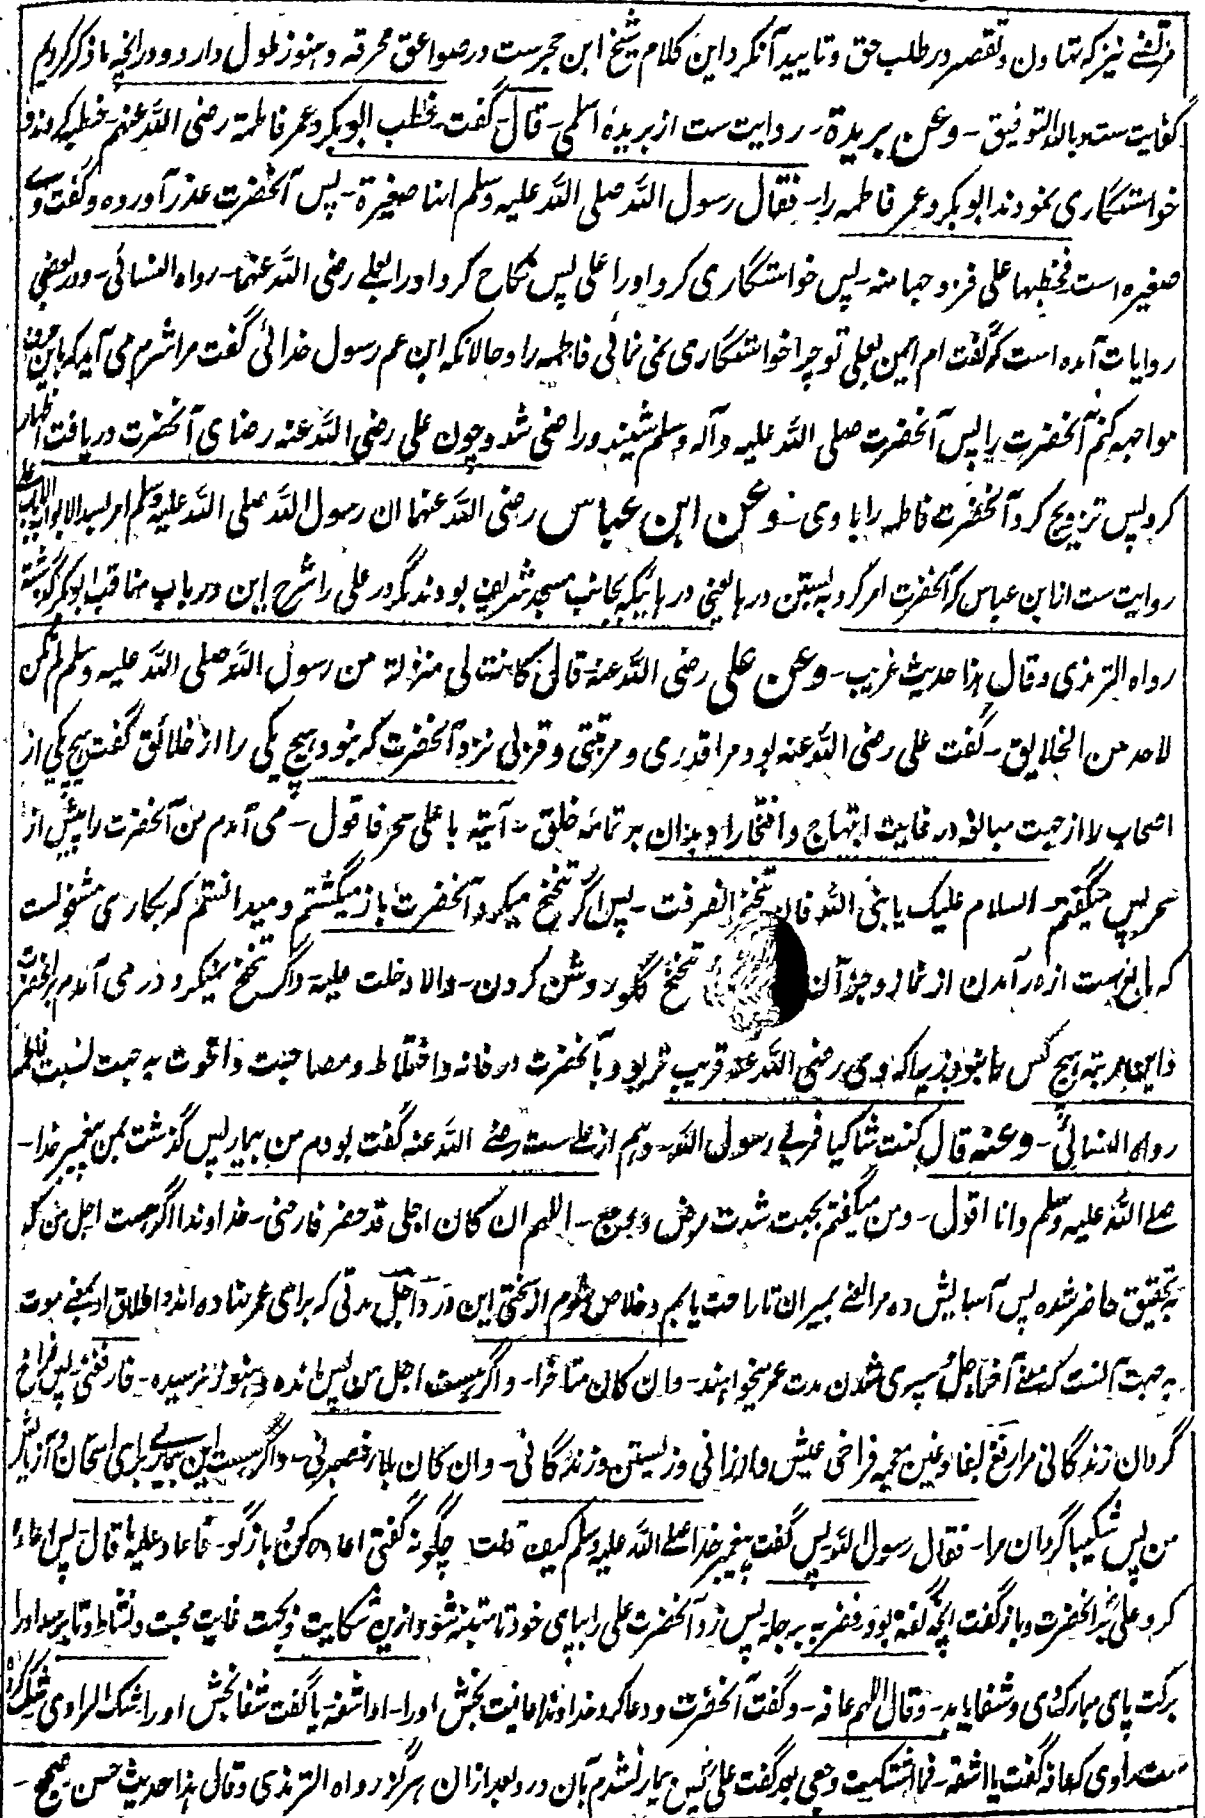 مرتضے نیز کہ تہاون و تقصیر در طلب حق و تایید آنکرد این کلام شیخ ابن حجرست در صواعق محرقہ و ہنوز طول دارد و درانچہ ما ذکر کردیم
کفایت ست و باللہ التوفیق - وعن بریدۃ - روایت ست از بریدہ اسلمی - قال - گفت - خطب ابوبکر و عمر فاطمۃ رضی اللہ عنہم - خطبہ کردند و
خواستگاری نمودند ابوبکر و عمر فاطمہ را - فقال رسول اللہ صلی اللہ علیہ وسلم انہا صغیرۃ - پس آنحضرت عذر آوردہ و گفت وے
صغیرہ است فخطبہا علی فزوجہا منہ - پس خواستگاری کرد اورا علی پس نکاح کرد اورا بعلے رضی اللہ عنہما - رواہ النسائی - و در بعضی
روایات آمدہ است کہ گفت ام ایمن بعلی تو چرا خواستگاری نمی نمائی فاطمہ را و حالانکہ ابن عم رسول خدائی گفت مرا شرم می آید کہ باین
مواجہہ کنم آنحضرت را پس آنحضرت صلی اللہ علیہ وآلہ وسلم شنید و راضی شد و چون علی رضی اللہ عنہ رضای آنحضرت دریافت اظہار
کرد پس تزویج کرد آنحضرت فاطمہ را با وی - وعن ابن عباس رضی اللہ عنہما ان رسول اللہ صلی اللہ علیہ وسلم امر بسد الابواب الا باب علی
روایت ست از ابن عباس کہ آنحضرت امر کرد بہ بستن درہا یعنی درہائیکہ بجانب مسجد شریف بودند مگر در علی را شرح این در باب مناقب ابوبکر گذشتہ
رواہ الترمذی وقال ہذا حدیث غریب - وعن علی رضی اللہ عنہ قال کانت لی منزلۃ من رسول اللہ صلی اللہ علیہ وسلم لم تکن
لاحد من الخلایق - گفت علی رضی اللہ عنہ بود مرا قدری و مرتبتی و قربی نزد آنحضرت کہ نبود ہیچ یکی را از خلائق گفت ہیچ یکی از
اصحاب را از جہت مبالغہ در غایت ابتہاج و افتخار او بدان بر تمامہ خلق - آتیہ باعلی سحر فاقول - می آمدم من آنحضرت را پیش از
سحر پس میگفتم - السلام علیک یا نبی اللہ فان تنحنح انصرفت - پس اگر تنحنح میکرد آنحضرت باز میگشتم و میدانستم کہ بکاری مشغولست
کہ مانع ست از درآمدن از نماز و جز آن تنحنح گلو روشن کردن - والا دخلت علیہ و اگر تنحنح نمیکرد در می آمدم بر آنحضرت
و این مرتبہ ہیچ کس را نبود زیراکہ وی رضی اللہ عنہ قریب تر بود بآنحضرت در خانہ و اختلاط و مصاحبت و اخوت بہ جہت نسبت فاطمہ
رواہ النسائی - وعنہ قال کنت شاکیا فمر بی رسول اللہ - وہم از علی ست رضے اللہ عنہ گفت بودم من بیمار پس گذشت بمن پیغمبر خدا -
صلے اللہ علیہ وسلم وانا اقول - و من میگفتم بجہت شدت مرض و وجع - اللہم ان کان اجلی قد حضر فارحنی - خداوندا اگر ہست اجل من کہ
بہ تحقیق حاضر شدہ پس آسایش دہ مرا یعنے بمیران تا راحت یابم و خلاص شوم از سختی این درد و اجل مدتی کہ برای عمر نہادہ اند و اطلاق او بمعنے موت
بہ جہت آنست کہ معنے آخر اجل و سپری شدن مدت عمر میخواہند - وان کان متاخرا - و اگر ہست اجل من پس ماندہ و ہنوز نرسیدہ - فارفغنی - پس فراخ
گردان زندگانی مرا رفغ بفا و غین معجمہ فراخی عیش و ارزانی و زیستن و زندگانی - وان کان بلاء فصبرنی - و اگر ہست این بیماری برای امتحان و آزمایش
من پس شکیبا گردان مرا - فقال رسول اللہ پس گفت پیغمبر خدا صلے اللہ علیہ وسلم کیف قلت چگونہ گفتی اعادہ کن و بازگو - فاعاد علیہ ما قال پس اعادہ
کرد علی بر آنحضرت و باز گفت آنچہ گفتہ بود فضربہ برجلہ پس زد آنحضرت علی را بپای خود تا متنبہ شود ازین شکایت و بجہت غایت محبت و نشاط و تا برسد اورا
برکت پای مبارک وی و شفا یابد - وقال اللہم عافہ - و گفت آنحضرت و دعا کرد خداوندا عافیت بخش اورا - او اشفہ یا گفت شفا بخش اورا شک الراوی شک کردہ
ست راوی کہ عافہ گفت یا اشفہ - فما اشتکیت وجعی بعد گفت علی پس بیمار نشدم بآن درد بعد ازان ہرگز رواہ الترمذی وقال ہذا حدیث حسن صحیح -